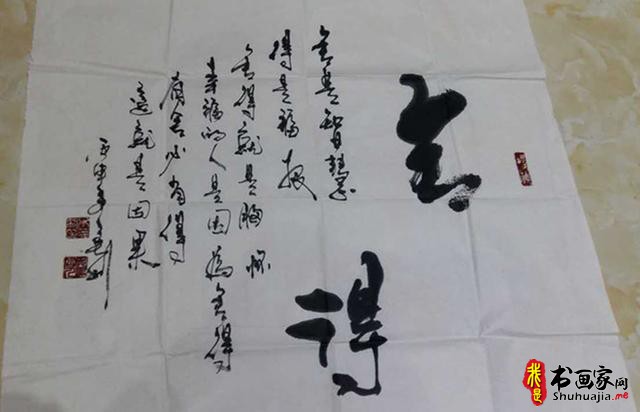 舍得
舍是智慧
得是福报
舍得就是胸怀
幸福的人是因為舍得
有舍必有得
這就是因果
丙申年
我是
书画家网
Shuhuajia.me